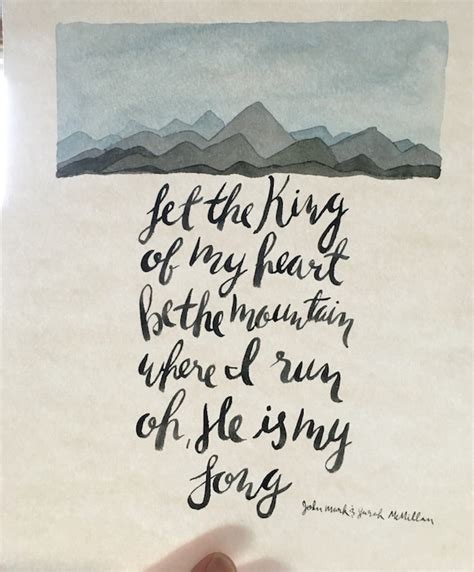 let the King
of my heart
be the mountain
where I run
oh, He is my
song
John Mark & Sarah McMillan